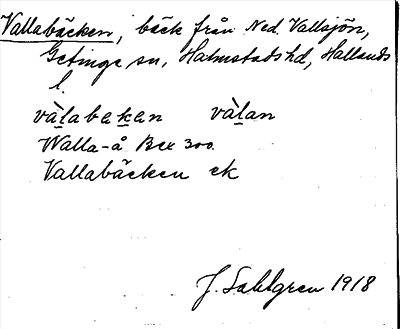 Vallabäcken, bäck från Ned. Vallsjön,
Getinge sn, Halmstads hd, Hallands
l.
và̀labekan và̀lan
Walla-å Bex 300.
Vallabäcken ek
J. Sahlgren 1918